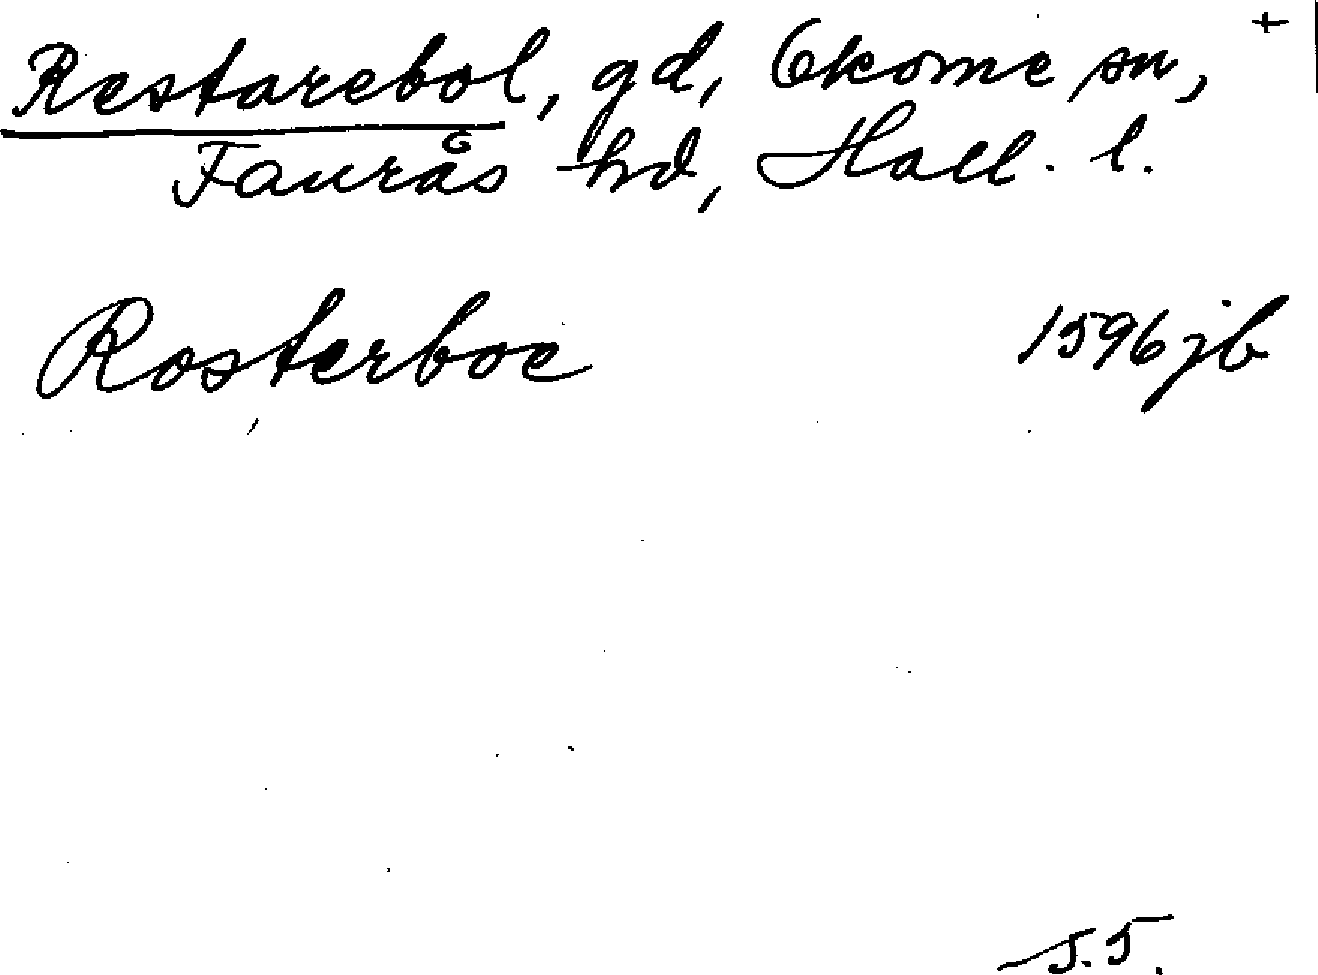 Restarebol, gd, Okome sn, +
Faurås hd, Hall. l.
Rosterboe 1596 jb
J.T.